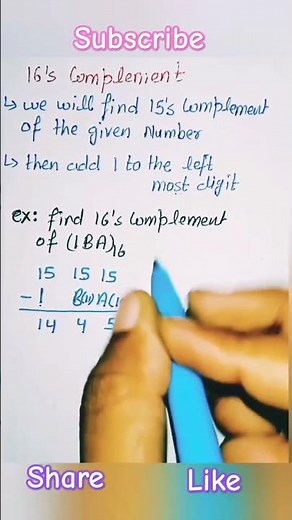 Subscribe
16's Complenient
↳ we will find 15's complement
of the given Number
↳ then add 1 to the left
most digit
ex: find 16's complement
of (1BA)16
15 15 15
- 1 B(11) A(1
14 4 5
Share
Like